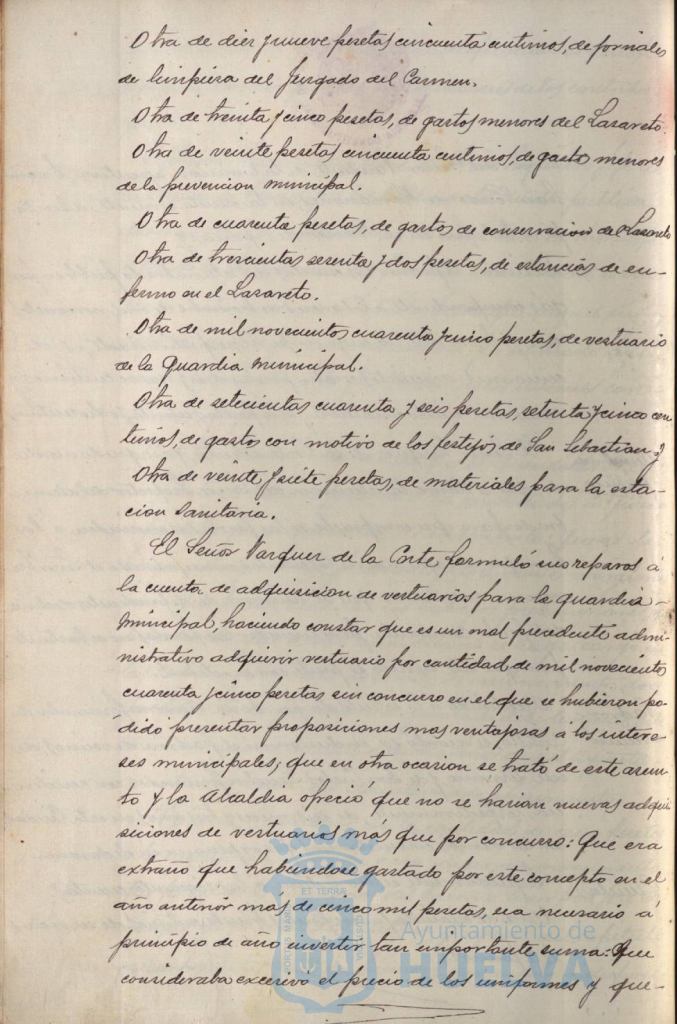 Otra de diez y nueve pesetas cincuenta centimos, de jornales
de limpieza del Juzgado del Carmen.
Otra de treinta y cinco pesetas, de gastos menores del Lazareto.
Otra de veinte pesetas cincuenta centimos, de gasto menores
de la prevencion municipal.
Otra de cuarenta pesetas, de gastos de conservacion del Lazareto
Otra de trescientas sesenta y dos pesetas, de estancias de en-
fermo en el Lazareto.
Otra de mil novecientos cuarenta y cinco pesetas, de vestuario
de la guardia municipal.
Otra de setecientas cuarenta y seis pesetas, setenta y cinco cen
timos, de gastos con motivo de los festejos de San Sebastian y
Otra de veinte y siete pesetas, de materiales para la esta-
cion sanitaria.
El Señor Vazquez de la Corte formuló sus reparos á
la cuenta de adquisicion de vestuarios para la guardia-
municipal, haciendo constar que es un mal precedente admi-
nistrativo adquirir vestuario por cantidad de mil novecientos
cuarenta y cinco pesetas sin concurso en el que se hubieron po-
dido presentar proposiciones mas ventajosas á los intere-
ses municipales; que en otra ocasion se trató de este asun-
to y la Alcaldia ofreció que no se harian nuevas adqui
siciones de vestuarios más que por concurso: Que era
extraño que habiendose gastado por este concepto en el
año anterior más de cinco mil pesetas, sea necesario á
principio de año invertir tan importante suma: Que
consideraba excesivo el precio de los uniformes y que-
ET TERRÆ
Ayuntamiento de
HUELVA